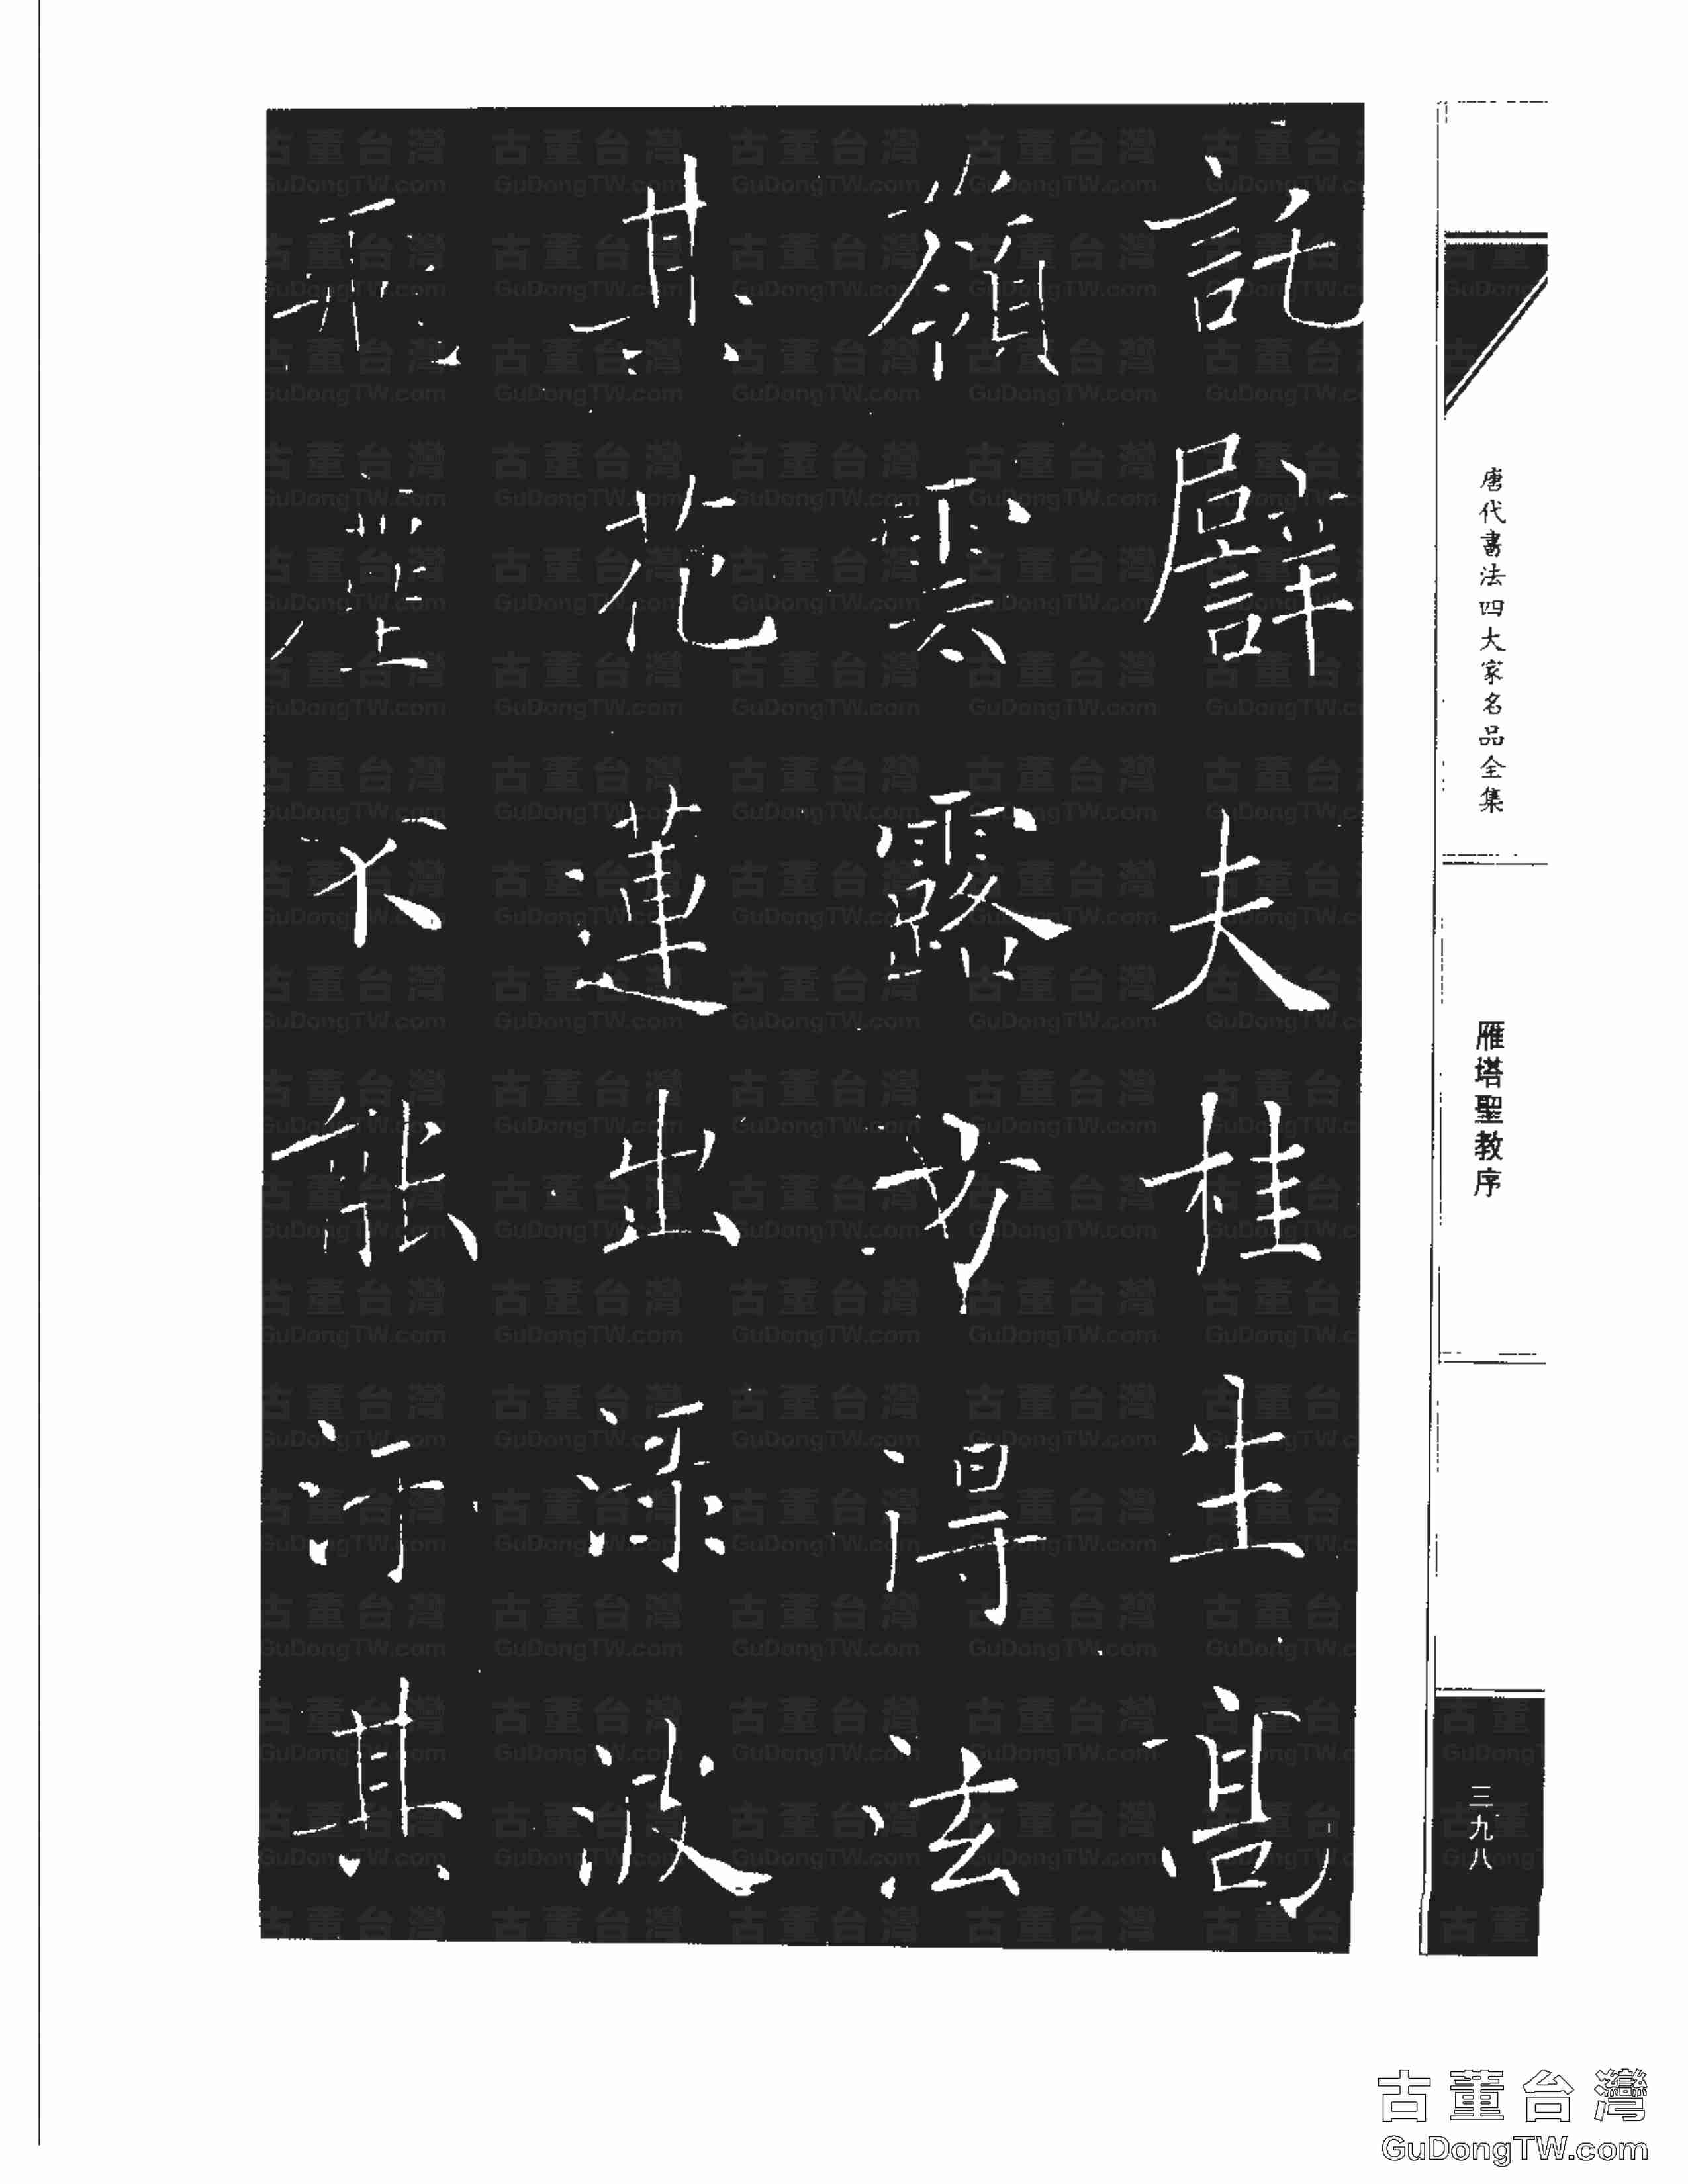 唐代書法四大家名品全集
雁塔聖教序
三九八
託譬夫桂生高
嶺雲露方得泫
其花蓮出淥波
飛塵不能汙其
古董台灣
GuDongTW.com